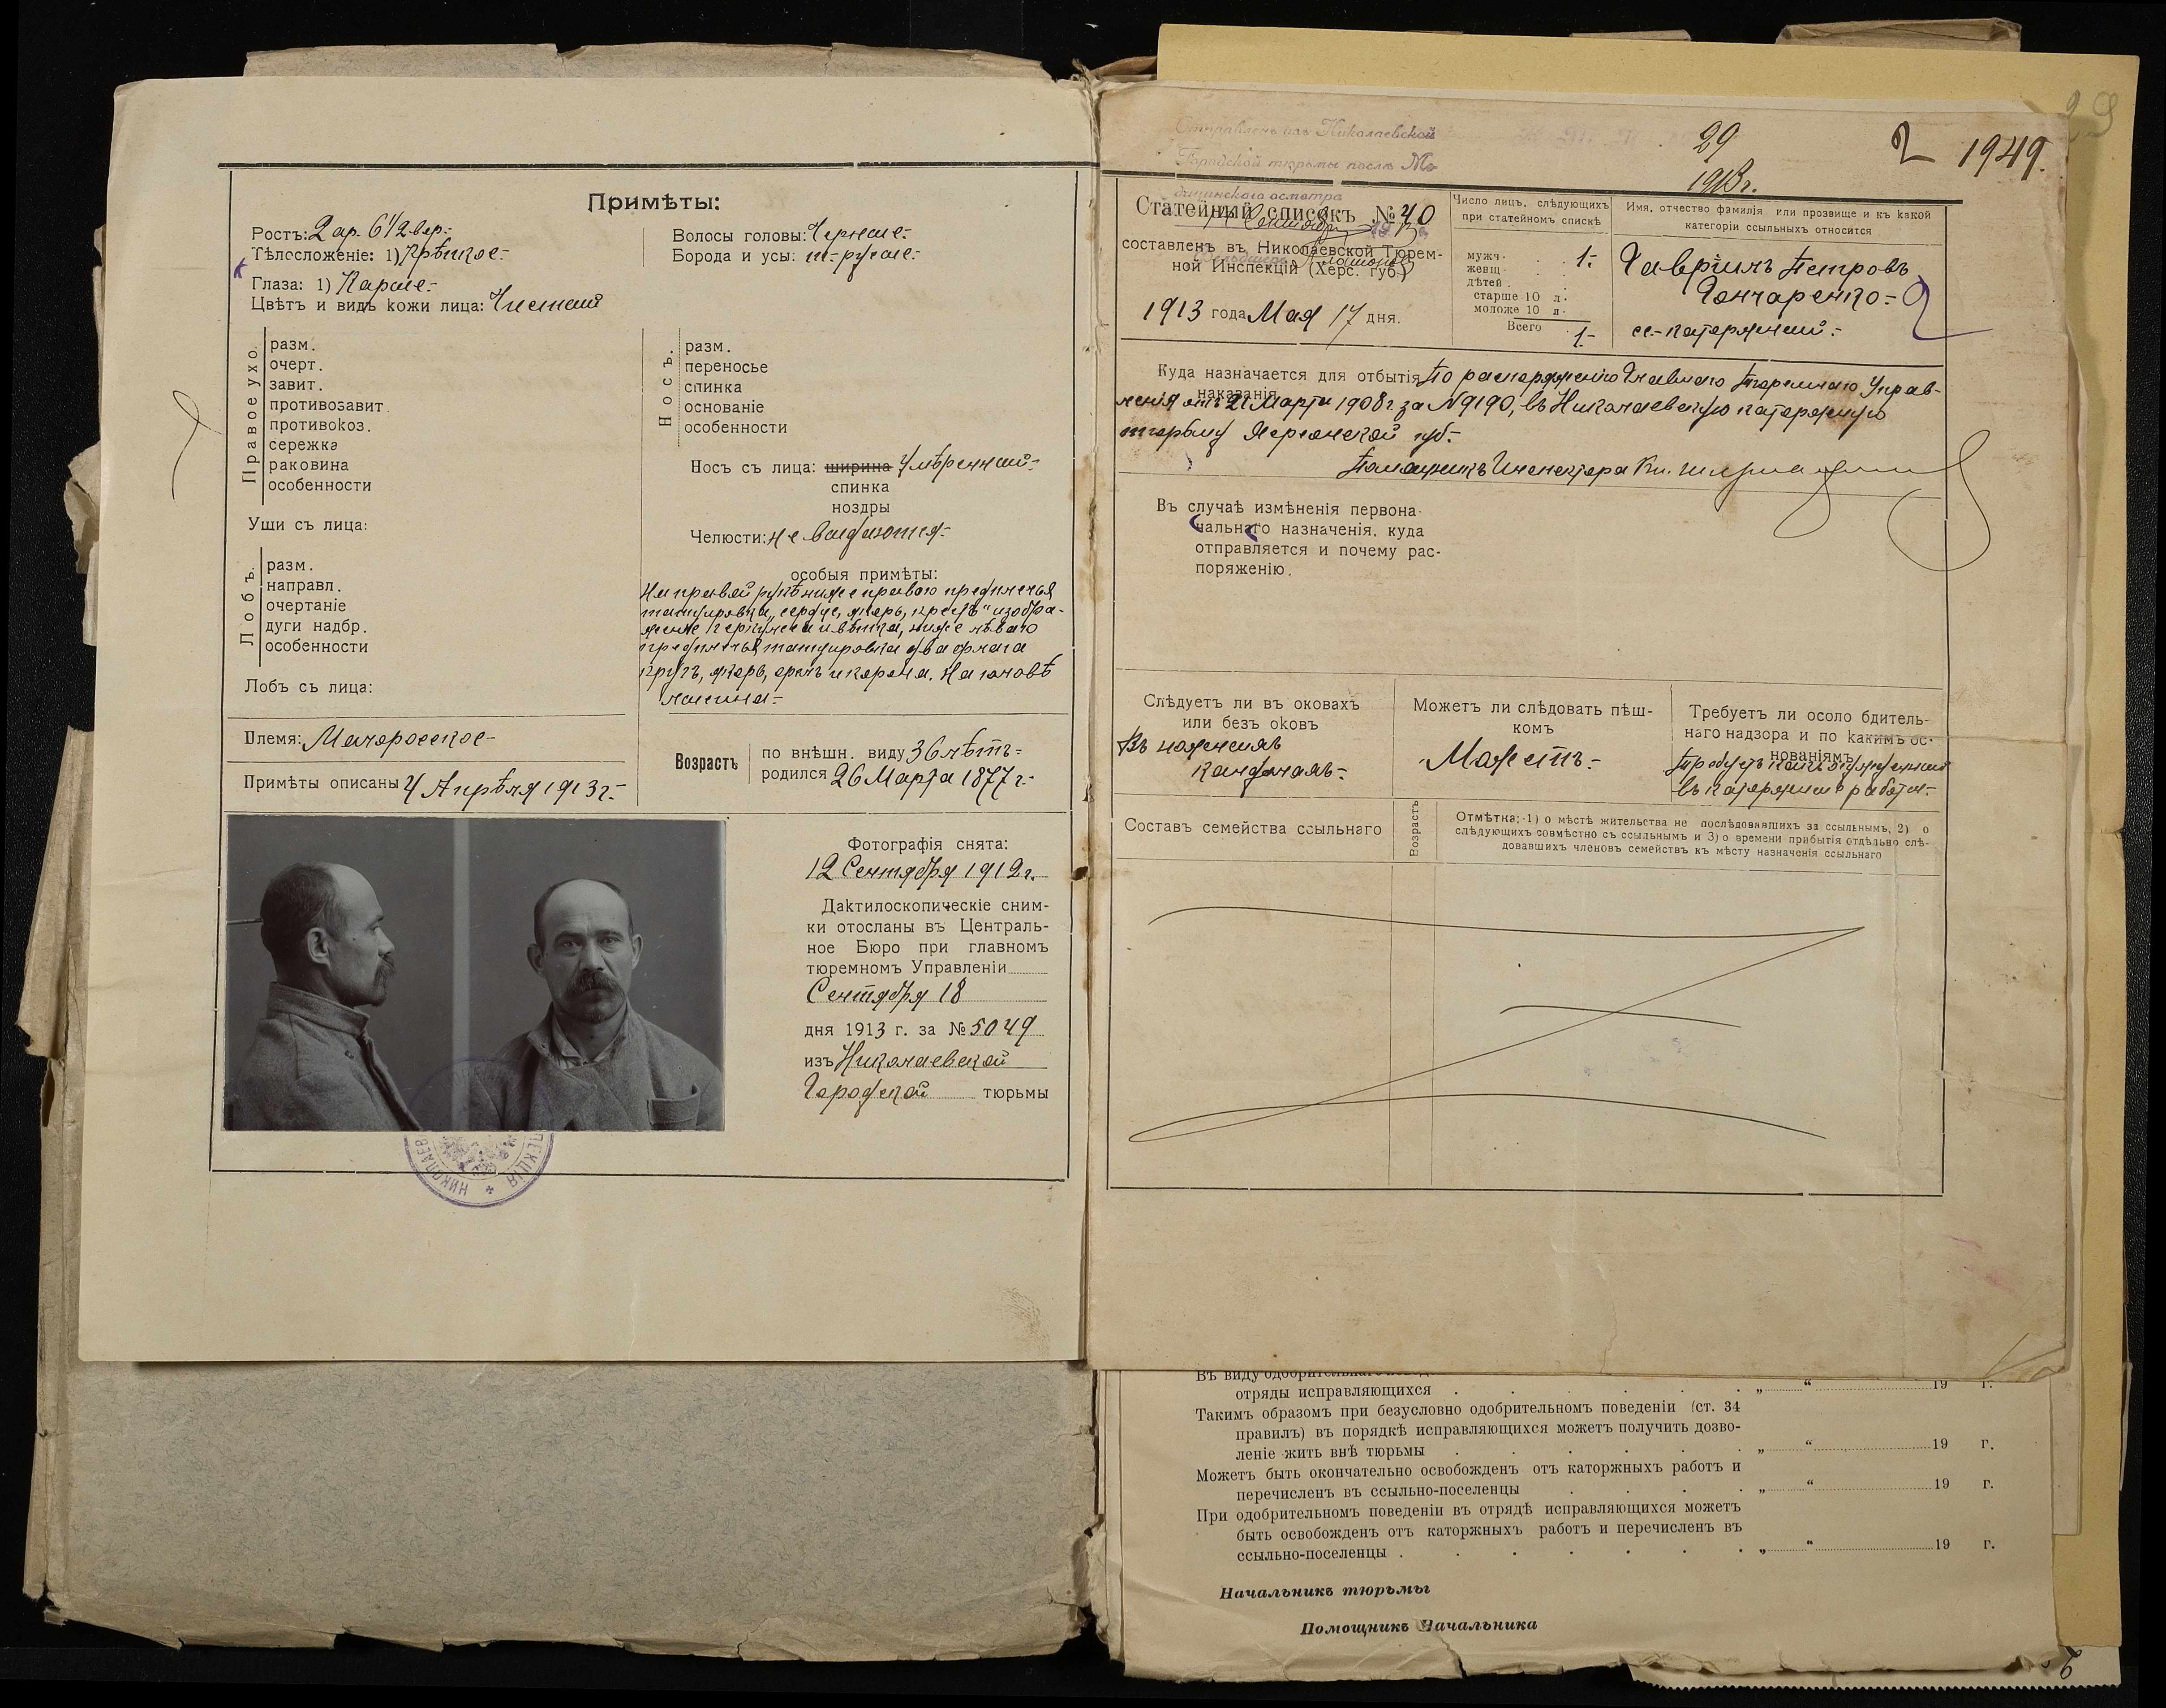 Примѣты:
Ростъ: 2 ар. 6 1/2 вер.-
Тѣлосложеніе: 1) Крѣпкое.-
Глаза: 1) Каріе.-
Цвѣтъ и видъ кожи лица: Чистый
Волосы головы: Черные.-
Борода и усы: т-русые.-
Правое ухо.
разм.
очерт.
завит.
противозавит.
противокоз.
сережка
раковина
особенности
Носъ.
разм.
переносье
спинка
основаніе
особенности
Носъ съ лица: ширина Умѣренный.-
спинка
ноздри
Уши съ лица:
Челюсти: не выдаются.-
Лобъ.
разм.
направл.
очертаніе
дуги надбр.
особенности
Лобъ съ лица:
особыя примѣты:
На правой рукѣ ниже праваго предплечья
татуировка „сердце, якорь, крестъ" изобра-
женіе и вѣнка, ниже лѣваго
предплечья татуировка два флага
кругъ, якорь, орелъ и корона. На головѣ
лысина.-
Племя: Малоросское-
Примѣты описаны 4 Апрѣля 1913 г.-
Возрастъ
по внѣшн. виду 36 лѣтъ.-
родился 26 Марта 1877 г.-
Фотографія снята:
12 Сентября 1912 г.
Дактилоскопическіе сним-
ки отосланы въ Централь-
ное Бюро при главномъ
тюремномъ Управленіи
Сентября 18
дня 1913 г. за № 5049
изъ Николаевской
Городской тюрьмы
НИКОЛАЕВ
ПЕКЦІЯ
Отправленъ изъ Николаевской
Городской тюрьмы послѣ Ме-
дицинскаго осмотра
29
1913 г.
2
1949.
29
Статейный списокъ № 40
составленъ въ Николаевской Тюрем-
ной Инспекціи (Херс. губ.)
1913 года Мая 17 дня.
Число лицъ, слѣдующихъ
при статейномъ спискѣ
мужч. 1.-
женщ.
дѣтей
старше 10 л.
моложе 10 л.
Всего 1.-
Имя, отчество фамилія или прозвище и къ какой
категоріи ссыльныхъ относится
Гавріилъ Петровъ
Гончаренко.-
сс.-каторжный.-
Куда назначается для отбытія По распоряженію Главнаго Тюремнаго Управ-
наказанія
ленія отъ 21 Марта 1908 г. за № 9190, въ Николаевскую каторжную
тюрьму Херсонской губ.-
Помощникъ Инспектора Кн.
Въ случаѣ измѣненія первона-
чальнаго назначенія, куда
отправляется и почему рас-
поряженію.
Слѣдуетъ ли въ оковахъ
или безъ оковъ
Въ ножныхъ
кандалахъ.-
Можетъ ли слѣдовать пѣш-
комъ
Можетъ.-
Требуетъ ли осоло бдитель-
наго надзора и по какимъ ос-
нованіямъ
Требуетъ какъ осужденный
въ каторжныя работы.-
Составъ семейства ссыльнаго
Возрастъ
Отмѣтка:-1) о мѣстѣ жительства не послѣдовавшихъ за ссыльнымъ, 2) о
слѣдующихъ совмѣстно съ ссыльнымъ и 3) о времени прибытія отдѣльно слѣ-
довавшихъ членовъ семействъ къ мѣсту назначенія ссыльнаго
Въ виду одобрительнаго
отряды исправляющихся . . . . . „ “ 19 г.
Такимъ образомъ при безусловно одобрительномъ поведеніи (ст. 34
правилъ) въ порядкѣ исправляющихся можетъ получить дозво-
леніе жить внѣ тюрьмы . . . . . „ “ 19 г.
Можетъ быть окончательно освобожденъ отъ каторжныхъ работъ и
перечисленъ въ ссыльно-поселенцы . . . . „ “ 19 г.
При одобрительномъ поведеніи въ отрядѣ исправляющихся можетъ
быть освобожденъ отъ каторжныхъ работъ и перечисленъ въ
ссыльно-поселенцы . . . . . . „ “ 19 г.
Начальникъ тюрьмы
Помощникъ Начальника